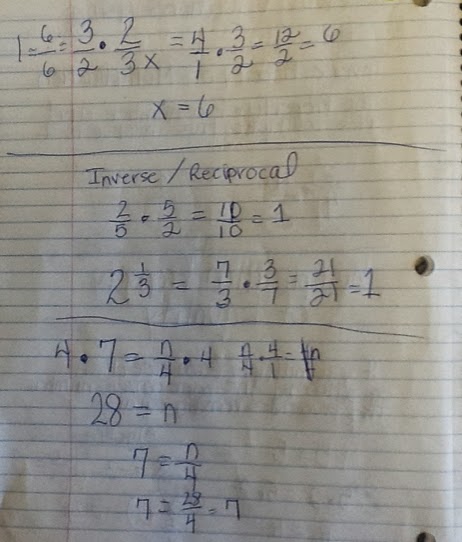 1 = 6/6 = 3/2 · 2/3 x = 4/1 · 3/2 = 12/2 = 6
x = 6
Inverse / Reciprocal
2/5 · 5/2 = 10/10 = 1
2 1/3 = 7/3 · 3/7 = 21/21 = 1
4 · 7 = n/4 · 4 n/4 · 4/1 = n
28 = n
7 = n/4
7 = 28/4 = 7